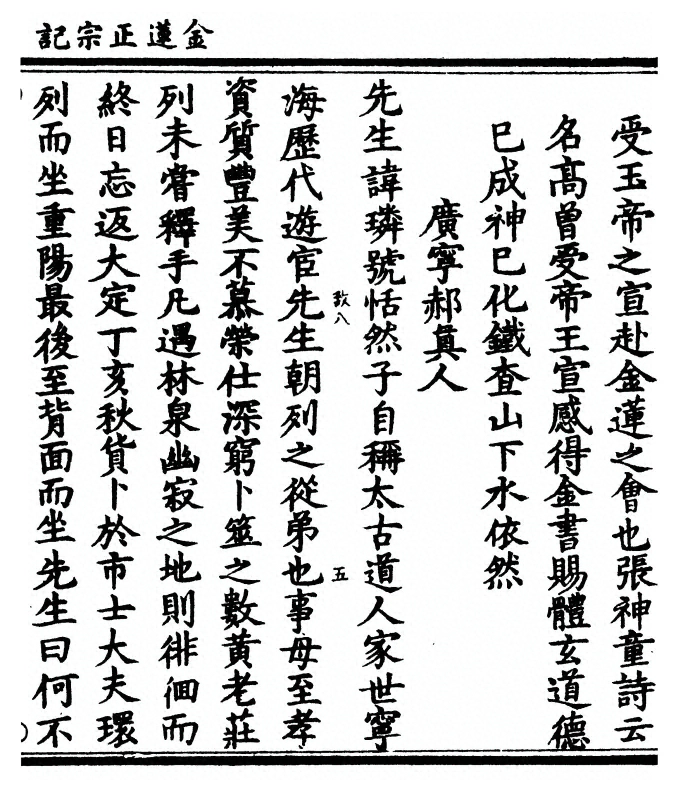 金蓮正宗記
受玉帝之宣赴金蓮之會也張神童詩云
名高曾受帝王宣感得金書賜體玄道德
已成神已化鐵查山下水依然
廣寧郝眞人
先生諱璘號恬然子自稱太古道人家世寧
海歷代遊宦先生朝列之從弟也事母至孝
致八
五
資質豐美不慕榮仕深窮卜筮之數黃老莊
列未嘗釋手凡遇林泉幽寂之地則徘徊而
終日忘返大定丁亥秋貨卜於市士大夫環
列而坐重陽最後至背面而坐先生曰何不